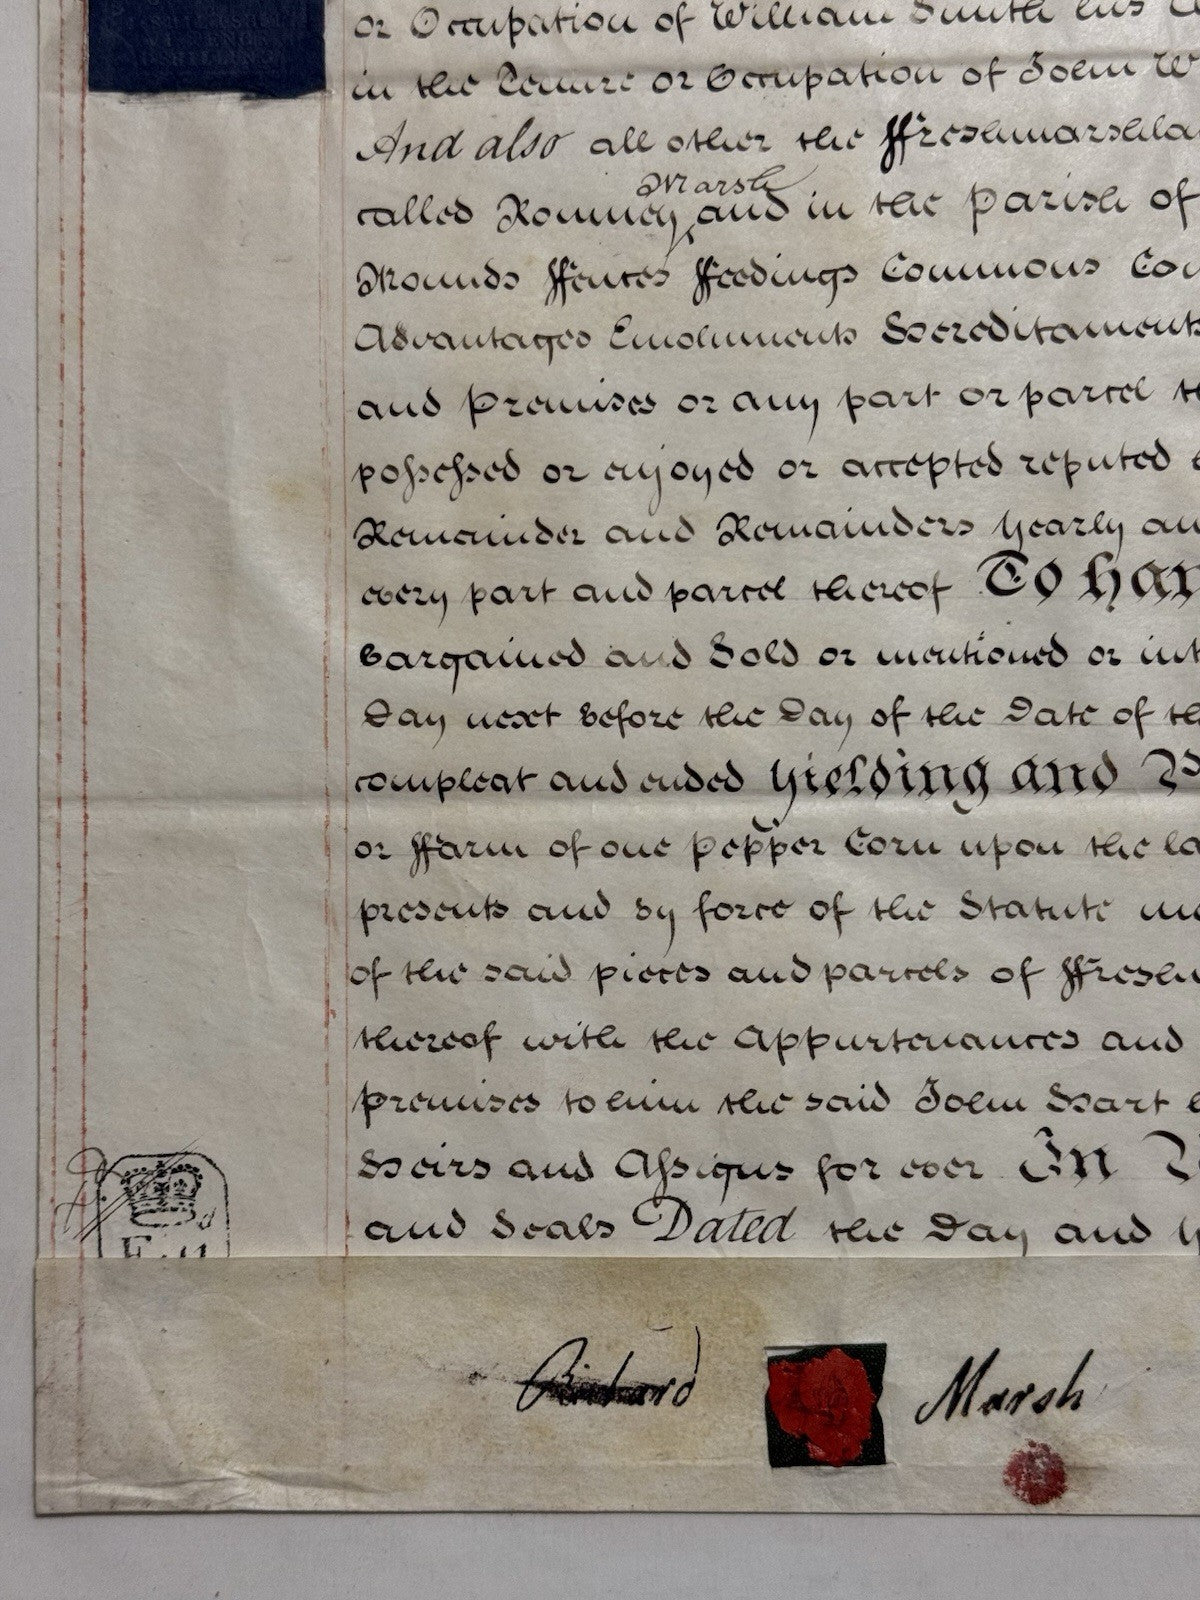 or Occupation of William Smith his
in the Tenure or Occupation of John W
And also all other the ffreshmarshla
Marsh
called Romney ‸ and in the Parish of
Mounds ffences ffeedings Commons Co
Advantages Emoluments Hereditaments
and Premises or any part or parcel t
possessed or enjoyed or accepted reputed
Remainder and Remainders Yearly an
every part and parcel thereof To hav
bargained and Sold or mentioned or int
Day next before the Day of the Date of th
compleat and ended Yielding and P
or ffarm of one Pepper Corn upon the la
presents and by force of the Statute m
of the said pieces and parcels of ffresh
thereof with the Appurtenances and
premises to him the said John Hart
Heirs and Assigns for ever In
and Seals Dated the Day and Y
Richard Marsh